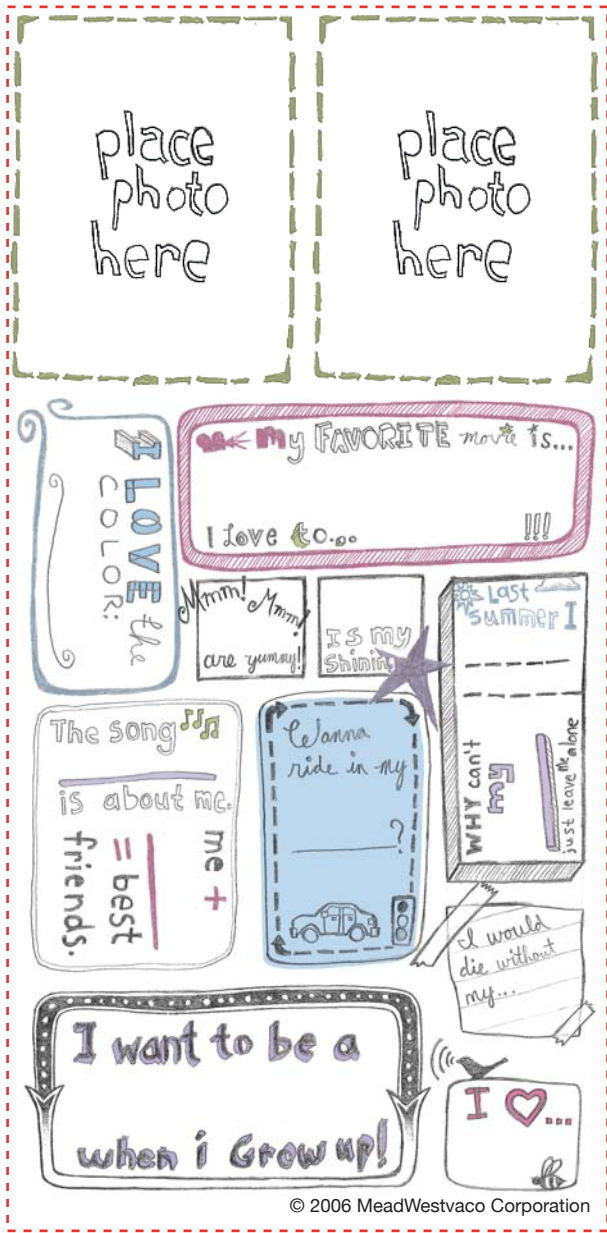 place
photo
here
place
photo
here
I LOVE the
COLOR:
my FAVORITE movie is...
I Love to...
!!!
Mmm! Mmm!
are yummy!
Is my
Shining
Last
Summer I
WHY can't
my
just leave me alone
The song
is about me.
me +
= best
friends.
Wanna
ride in my
?
I would
die without
my...
I want to be a
when i Grow up!
I ♡...
© 2006 MeadWestvaco Corporation